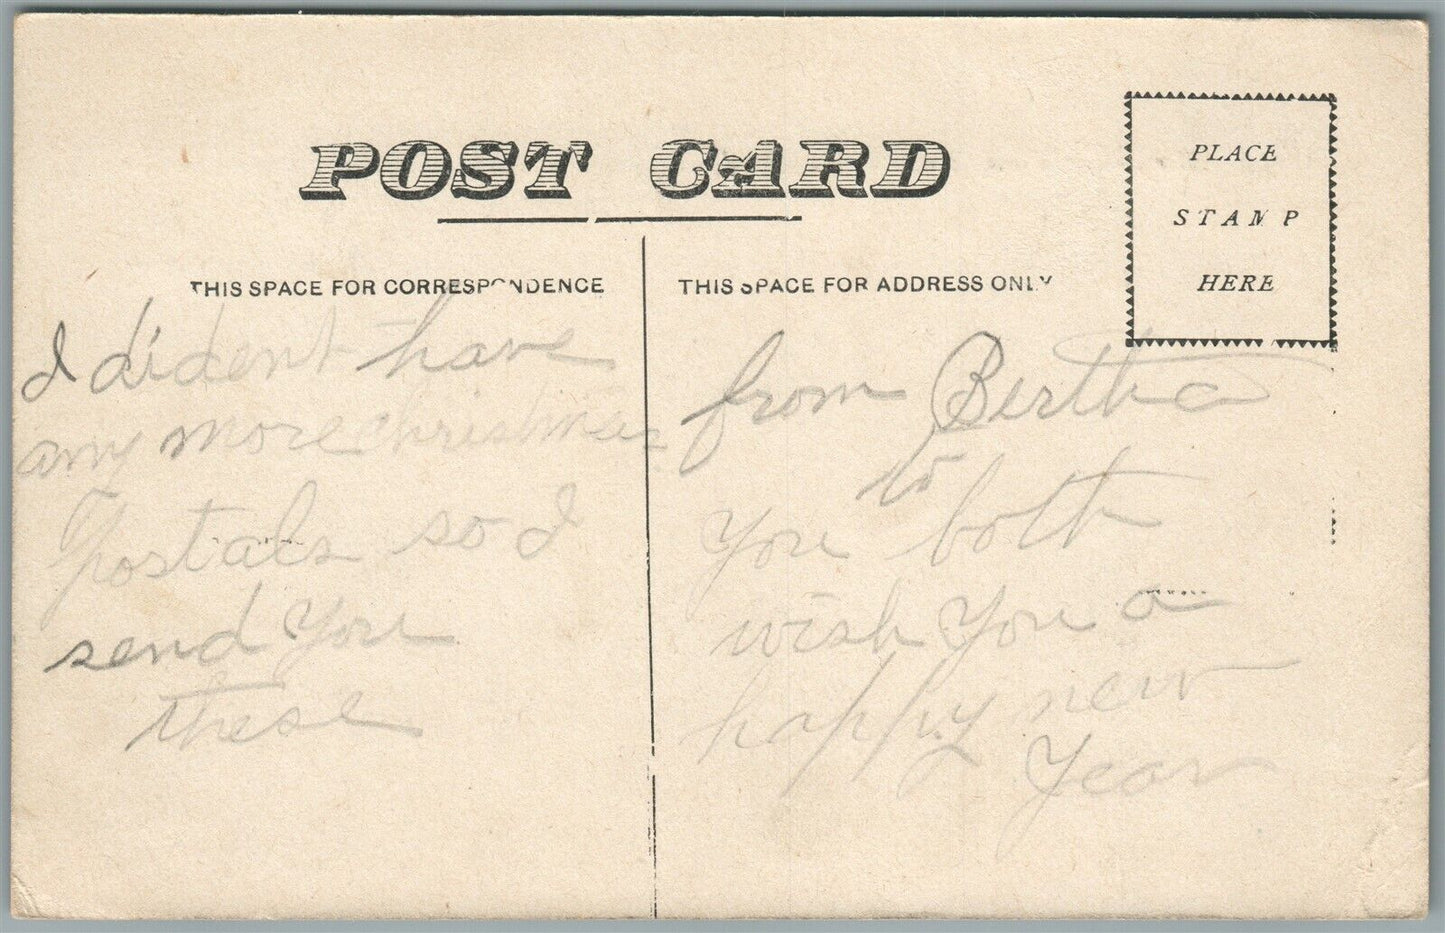 POST CARD
THIS SPACE FOR CORRESPONDENCE
I dident have
any more christmas
Postals so I
send You
these
THIS SPACE FOR ADDRESS ONLY
PLACE
STAMP
HERE
from Bertha
to
You both
wish You a
happy new
Year